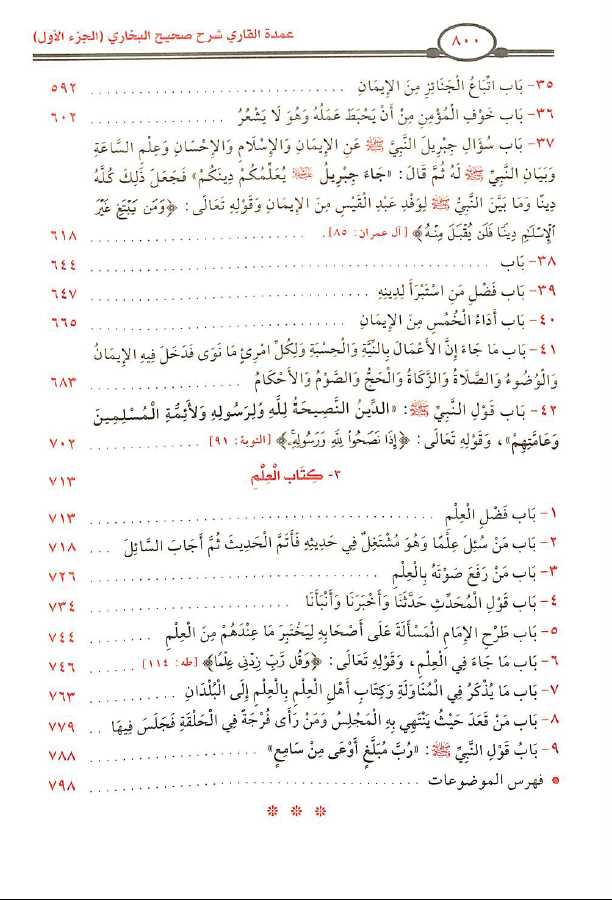 ٨٠٠ عمدة القاري شرح صحيح البخاري (الجزء الأول)
٣٥- بَاب اتِّبَاعُ الْجَنَائِزِ مِنَ الْإِيمَانِ ................ ٥٩٢
٣٦- بَاب خَوْفِ الْمُؤْمِنِ مِنْ أَنْ يَحْبَطَ عَمَلُهُ وَهُوَ لَا يَشْعُرُ ................ ٦٠٢
٣٧- بَاب سُؤَالِ جِبْرِيلَ النَّبِيَّ ﷺ عَنِ الْإِيمَانِ وَالْإِسْلَامِ وَالْإِحْسَانِ وَعِلْمِ السَّاعَةِ
وَبَيَانِ النَّبِيِّ ﷺ لَهُ ثُمَّ قَالَ: «جَاءَ جِبْرِيلُ ﷺ يُعَلِّمُكُمْ دِينَكُمْ» فَجَعَلَ ذَلِكَ كُلَّهُ
دِينًا وَمَا بَيَّنَ النَّبِيُّ ﷺ لِوَفْدِ عَبْدِ الْقَيْسِ مِنَ الْإِيمَانِ وَقَوْلِهِ تَعَالَى: ﴿وَمَن يَبْتَغِ غَيْرَ
الْإِسْلَامِ دِينًا فَلَن يُقْبَلَ مِنْهُ﴾ [آل عمران: ٨٥]. ................ ٦١٨
٣٨- بَاب ................ ٦٤٤
٣٩- بَاب فَضْلِ مَنِ اسْتَبْرَأَ لِدِينِهِ ................ ٦٤٧
٤٠- بَاب أَدَاءُ الْخُمُسِ مِنَ الْإِيمَانِ ................ ٦٦٥
٤١- بَاب مَا جَاءَ إِنَّ الْأَعْمَالَ بِالنِّيَّةِ وَالْحِسْبَةِ وَلِكُلِّ امْرِئٍ مَا نَوَى فَدَخَلَ فِيهِ الْإِيمَانُ
وَالْوُضُوءُ وَالصَّلَاةُ وَالزَّكَاةُ وَالْحَجُّ وَالصَّوْمُ وَالْأَحْكَامُ ................ ٦٨٣
٤٢- بَاب قَوْلِ النَّبِيِّ ﷺ: «الدِّينُ النَّصِيحَةُ لِلَّهِ وَلِرَسُولِهِ وَلِأَئِمَّةِ الْمُسْلِمِينَ
وَعَامَّتِهِمْ»، وَقَوْلِهِ تَعَالَى: ﴿إِذَا نَصَحُوا لِلَّهِ وَرَسُولِهِ﴾ [التوبة: ٩١] ................ ٧٠٢
٣- كِتَاب الْعِلْمِ ٧١٣
١- بَاب فَضْلِ الْعِلْمِ ................ ٧١٣
٢- بَاب مَنْ سُئِلَ عِلْمًا وَهُوَ مُشْتَغِلٌ فِي حَدِيثِهِ فَأَتَمَّ الْحَدِيثَ ثُمَّ أَجَابَ السَّائِلَ ... ٧١٨
٣- بَاب مَنْ رَفَعَ صَوْتَهُ بِالْعِلْمِ ................ ٧٢٦
٤- بَاب قَوْلِ الْمُحَدِّثِ حَدَّثَنَا وَأَخْبَرَنَا وَأَنْبَأَنَا ................ ٧٣٤
٥- بَاب طَرْحِ الْإِمَامِ الْمَسْأَلَةَ عَلَى أَصْحَابِهِ لِيَخْتَبِرَ مَا عِنْدَهُمْ مِنَ الْعِلْمِ ......... ٧٤٤
٦- بَاب مَا جَاءَ فِي الْعِلْمِ، وَقَوْلِهِ تَعَالَى: ﴿وَقُل رَّبِّ زِدْنِي عِلْمًا﴾ [طه: ١١٤] ......... ٧٤٦
٧- بَاب مَا يُذْكَرُ فِي الْمُنَاوَلَةِ وَكِتَابِ أَهْلِ الْعِلْمِ بِالْعِلْمِ إِلَى الْبُلْدَانِ ......... ٧٦٣
٨- بَاب مَنْ قَعَدَ حَيْثُ يَنْتَهِي بِهِ الْمَجْلِسُ وَمَنْ رَأَى فُرْجَةً فِي الْحَلْقَةِ فَجَلَسَ فِيهَا ... ٧٧٩
٩- بَابُ قَوْلِ النَّبِيِّ ﷺ: «رُبَّ مُبَلَّغٍ أَوْعَى مِنْ سَامِعٍ» ................ ٧٨٨
• فهرس الموضوعات ................ ٧٩٨
* * *